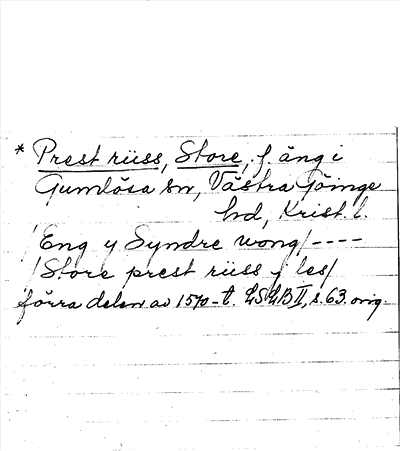 * Prest rüss, Store, f. äng i
Gumlösa sn, Västra Göinge
hd, Krist. l.
/Eng y Syndre wong/ ----
/Store prest rüss y les/
förra delen av 1570-t. LSLB II, s. 63. orig.